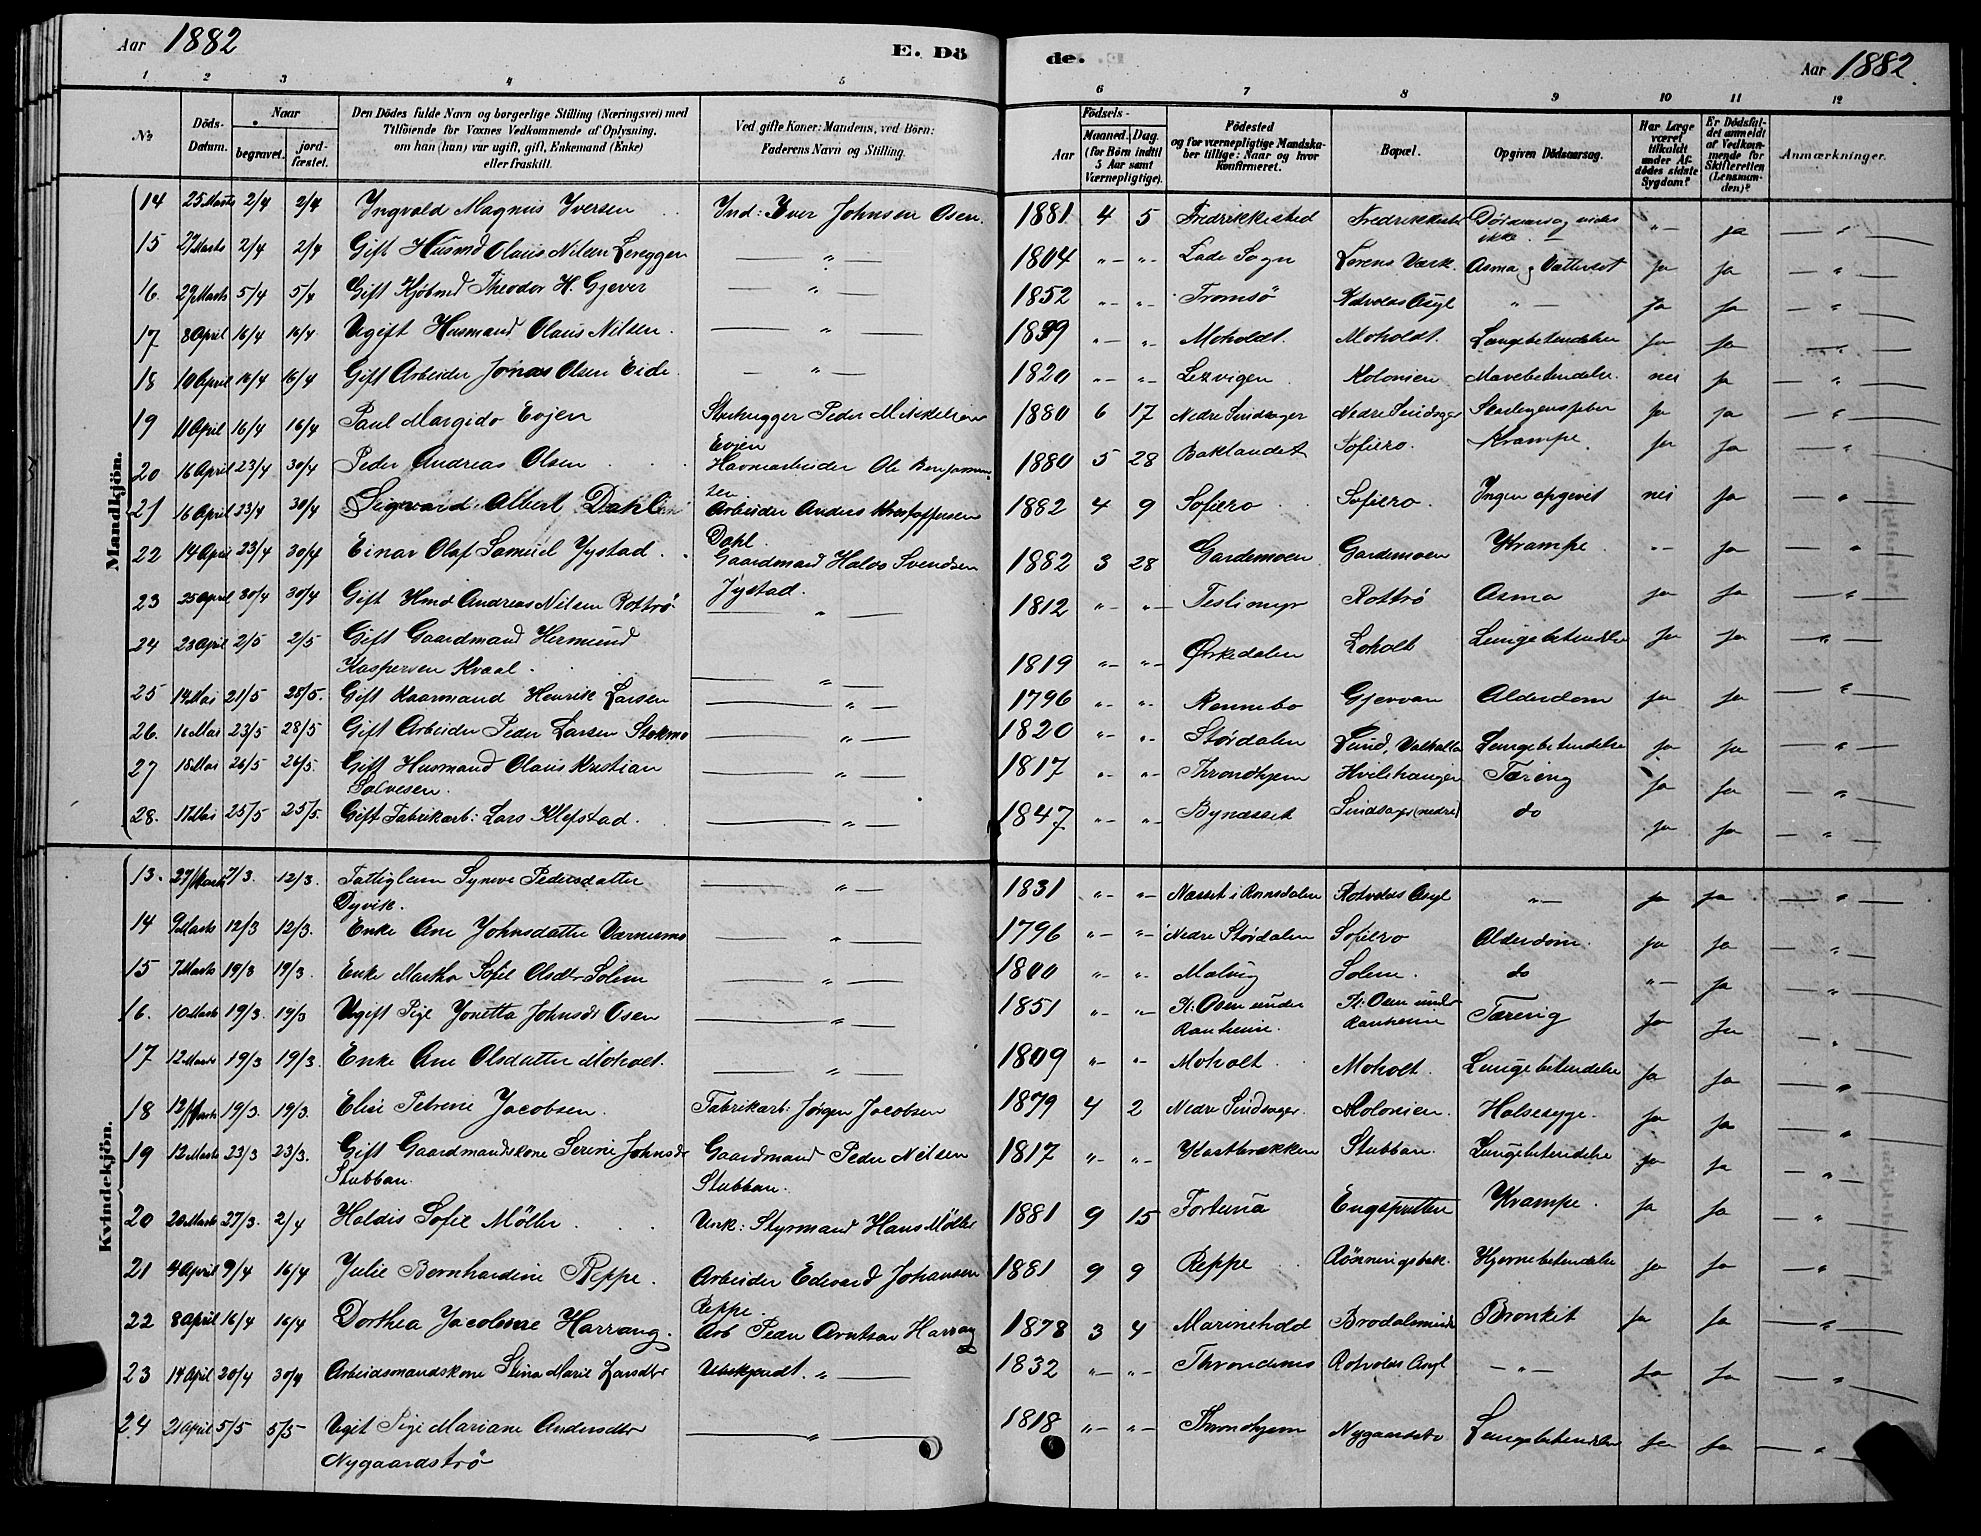 Aar 1882 E. Dö de. Aar 1882.
1 2 3 4 5 6 7 8 9 10 11 12
No Döds-Datum. Naar begravet. jord-fæstet. Den Dödes fulde Navn og borgerlige Stilling (Næringsvei) med Tilföiende for Voxnes Vedkommende af Oplysning, om han (hun) var ugift, gift, Enkemand (Enke) eller fraskilt. Ved gifte Koner: Mandens, ved Börn: Faderens Navn og Stilling. Födsels- Aar Maaned. Dag. (for Börn indtil 5 Aar samt Værnepligtige). Födested og for værnepligtige Mandskaber tillige: Naar og hvor Konfirmeret. Bopæl. Opgiven Dödsaarsag. Har Læge været tilkaldt under Afdödes sidste Sygdom? Er Dödsfaldet anmeldt af Vedkommende for Skifteretten (Lensmanden)? Anmærkninger.
Mandkjön.
14 25 Marts 2/4 2/4 Ingvald Magnus Iversen Ind: Iver Johnsen Osen. 1881 4 5 Fredrikkestad Fredrikkestad Dödsaarsag vides ikke. "- ja — " —
15 27 Marts 2/4 2/4 Gift Husmd Olaus Nilsen Lereggen — " — 1804 "- "- Lade Sogn Lerens Værk. Asma og Vattersot ja ja — " —
16. 29 Marts 5/4 5/4 Gift Kjöbmd Theodor H. Gjever — " — 1852 "- "- Tromsö Rotvolds Asyl " — ja ja — " —
17 8 April 16/4 16/4 Ugift Husmand Olaus Nilsen. — " — 1839 "- "- Moholdt. Moholdt. Lungebetendelse ja ja — " —
18 10 April 16/4 16/4 Gift Arbeider Jonas Olsen Eide. — " — 1820 "- "- Lexvigen Kolonien Mavebetendelse. nei ja — " —
19 11 April 16/4 16/4 Paul Margido Evjen Stenhugger Peder Mikkelsen Evjen 1880 6 17 Nedre Sindsager Nedre Sindsager Skarlagensfeber ja ja — " —
20 16 April 23/4 30/4 Peder Andreas Olsen Havnearbeider Ole Benjaminsen 1880 5 28 Baklandet Sofiero. Krampe. ja ja — " —
21 16 April 23/4 30/4 Sigevard Albert Dahl Arbeider Anders Kristoffersen Dahl. 1882 4 9 Sofiero Sofiero. Ingen opgivet nei ja — " —
22 14 April 23/4 30/4 Einar Olaf Samuel Jystad. Gaardmand Halvo Svendsen Jystad. 1882 3 28 Gardemoen Gardemoen Krampe "- ja — " —
23 25 April 30/4 30/4 Gift Hmd Andreas Nilsen Rottrö — " — 1812 "- "- Teslimyr Rottrö Asma ja ja — " —
24 23 April 2/5 2/5 Gift Gaardmand Hermund Kaspersen Kvaal. — " — 1819 "- "- Ørkedalen Loholt Lungebetendelse ja ja — " —
25 14 Mai 21/5 28/5. Gift Kaarmand Henrik Larsen — " — 1796 "- "- Rennebo Gjervan Alderdom ja ja — " —
26. 16 Mai 23/5 28/5 Gift Arbeider Peder Larsen Stokmo — " — 1820 "- "- Stördalen Lund, Valhalla Lungebetendelse ja ja — " —
27 18 Mai 26/5 26/5. Gift Husmand Olaus Kristian Salvesen. — " — 1817 "- "- Throndhjem Hvilehaugen Tæring ja ja — " —
28. 17 Mai 25/5 25/5. Gift Fabrikarb: Lars Klefstad. — " — 1847 "- "- Bynæsset Sindsager (nedre) do ja ja — " —
Kvindekjön.
13. 27/Marts 7/3. 12/3. Fattiglem Synøve Pedersdatter Dyvik. — " — 1831 "- "- Næsset i Romsdalen Rotvolds Asyl "— ja ja — " —
14 9 Marts 12/3 12/3. Enke Ane Johnsdatter Værnesmo — " — 1796 "- "- Nedre Stördalen Sofiero Alderdom. ja ja — " —
15 7 Marts 19/3 19/3. Enke Martha Sofie Olsdtr Solem — " — 1800 "- "- Malvig Solem. do "- ja — " —
16. 10 Marts 19/3. 19/3 Ugift Pige Jonetta Johnsdr Osen — " — 1851 "- "- Pl: Osen under Ranheim. Pl: Osen under Ranheim Tæring ja ja — " —
17 12 Marts 19/3 19/3. Enke Ane Olsdatter Moholt. — " — 1809 "- "- Moholt. Moholt. Lungebetendelse ja ja — " —
18 12/Marts 19/3. 19/3. Elise Petrine Jacobsen. Fabrikarb: Jörgen Jacobsen 1879 4 2 Nedre Sindsager. Kolonien. Halsesyge. ja ja — " —
19 12 Marts 23/3 23/3. Gift Gaardmandskone Serine Johnsdr Stubban. Gaardmand Peder Nilsen Stubban. 1817 "- "- Kastbrækken Stubban. Lungebetendelse ja ja — " —
20 20 Marts 27/3. 2/4 Haldis Sofie Möller Unk: Styrmand Hans Möller 1881 9 15 Fortuna Engsputten Krampe. ja ja — " —
21 4 April 9/4 16/4 Julie Bernhardine Reppe. Arbeider Edvard Johansen Reppe. 1881 9 9 Reppe Rönningsbak. Hjernebetendelse ja ja — " —
22 8 April 16/4 16/4 Dorthea Jacobine Harrang. Arb Peder Arntsen Harrang 1878 3 4 Marinehold Brodalsmindet Bronkit ja ja — " —
23 14 April 20/4 30/4 Arbeidsmandskone Stina Marie Larsdtr Ubekjendt. " — 1832 "- "- Throndenes Rotvolds Asyl — " — ja ja — " —
24 21 April 5/5 5/5 Ugift Pige Mariane Andersdtr Nygaardströ — " — 1818 "- "- Throndhjem Nygaardströ Lungebetendelse ja ja — " —